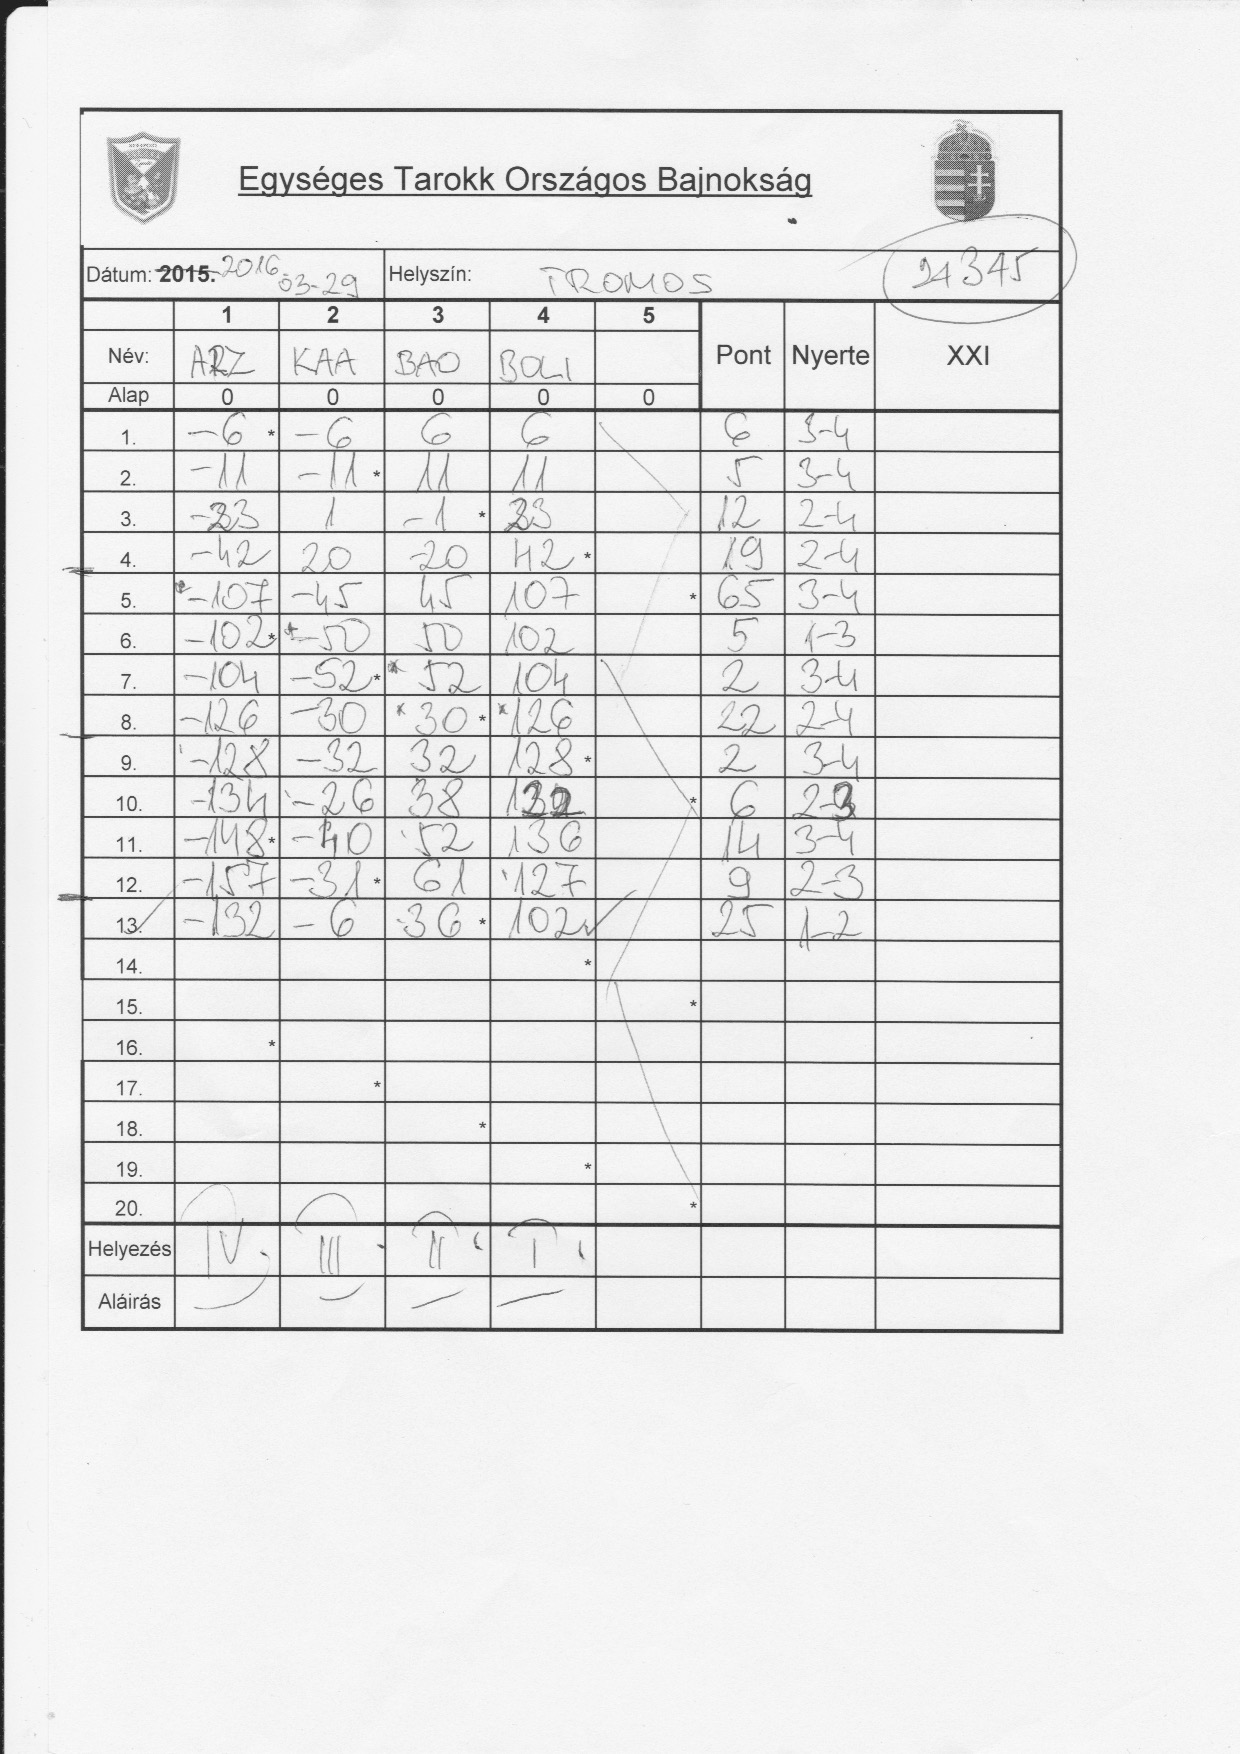 Egységes Tarokk Országos Bajnokság
Dátum: 2015. 2016 03-29 Helyszín: TROMOS 24345
1 2 3 4 5
Név: ARZ KAA BAO BOLI Pont Nyerte XXI
Alap 0 0 0 0 0
1. -6 * -6 6 6 6 3-4
2. -11 -11 * 11 11 5 3-4
3. -23 1 -1 * 23 12 2-4
4. -42 20 -20 42 * 19 2-4
5. * -107 -45 45 107 * 65 3-4
6. -102 * * -50 50 102 5 1-3
7. -104 -52 * * 52 104 2 3-4
8. -126 -30 * 30 * * 126 22 2-4
9. -128 -32 32 128 * 2 3-4
10. -134 -26 38 122 * 6 2-3
11. -148 * -40 52 136 14 3-4
12. -157 -31 * 61 127 9 2-3
13. -132 -6 36 * 102 25 1-2
14. *
15. *
16. *
17. *
18. *
19. *
20. *
Helyezés IV. III. II I
Aláírás